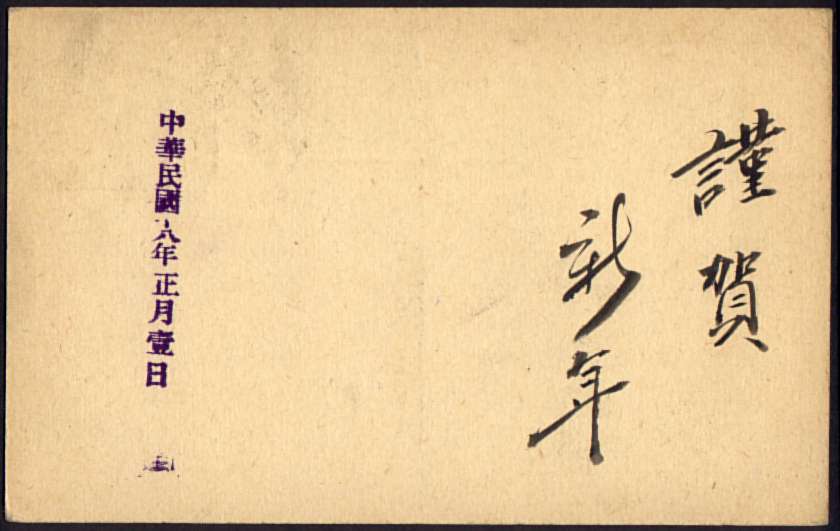 謹賀
新年
中華民國十八年正月壹日